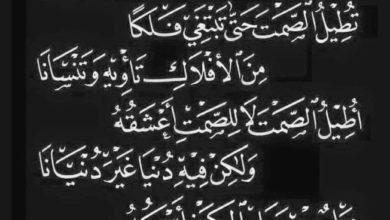 تُطِيلُ ٱلصَّمْتَ حَتَّىٰ تَبْتَغِي فَلَكًا
مِنَ ٱلْأَفْلَاكِ تَأْوِيهِ وَتَنْسَانَا
أُطِيلُ ٱلصَّمْتَ لَا لِلصَّمْتِ أَعْشَقُهُ
وَلَٰكِنْ فِيهِ دُنْيَا غَيْرُ دُنْيَانَا